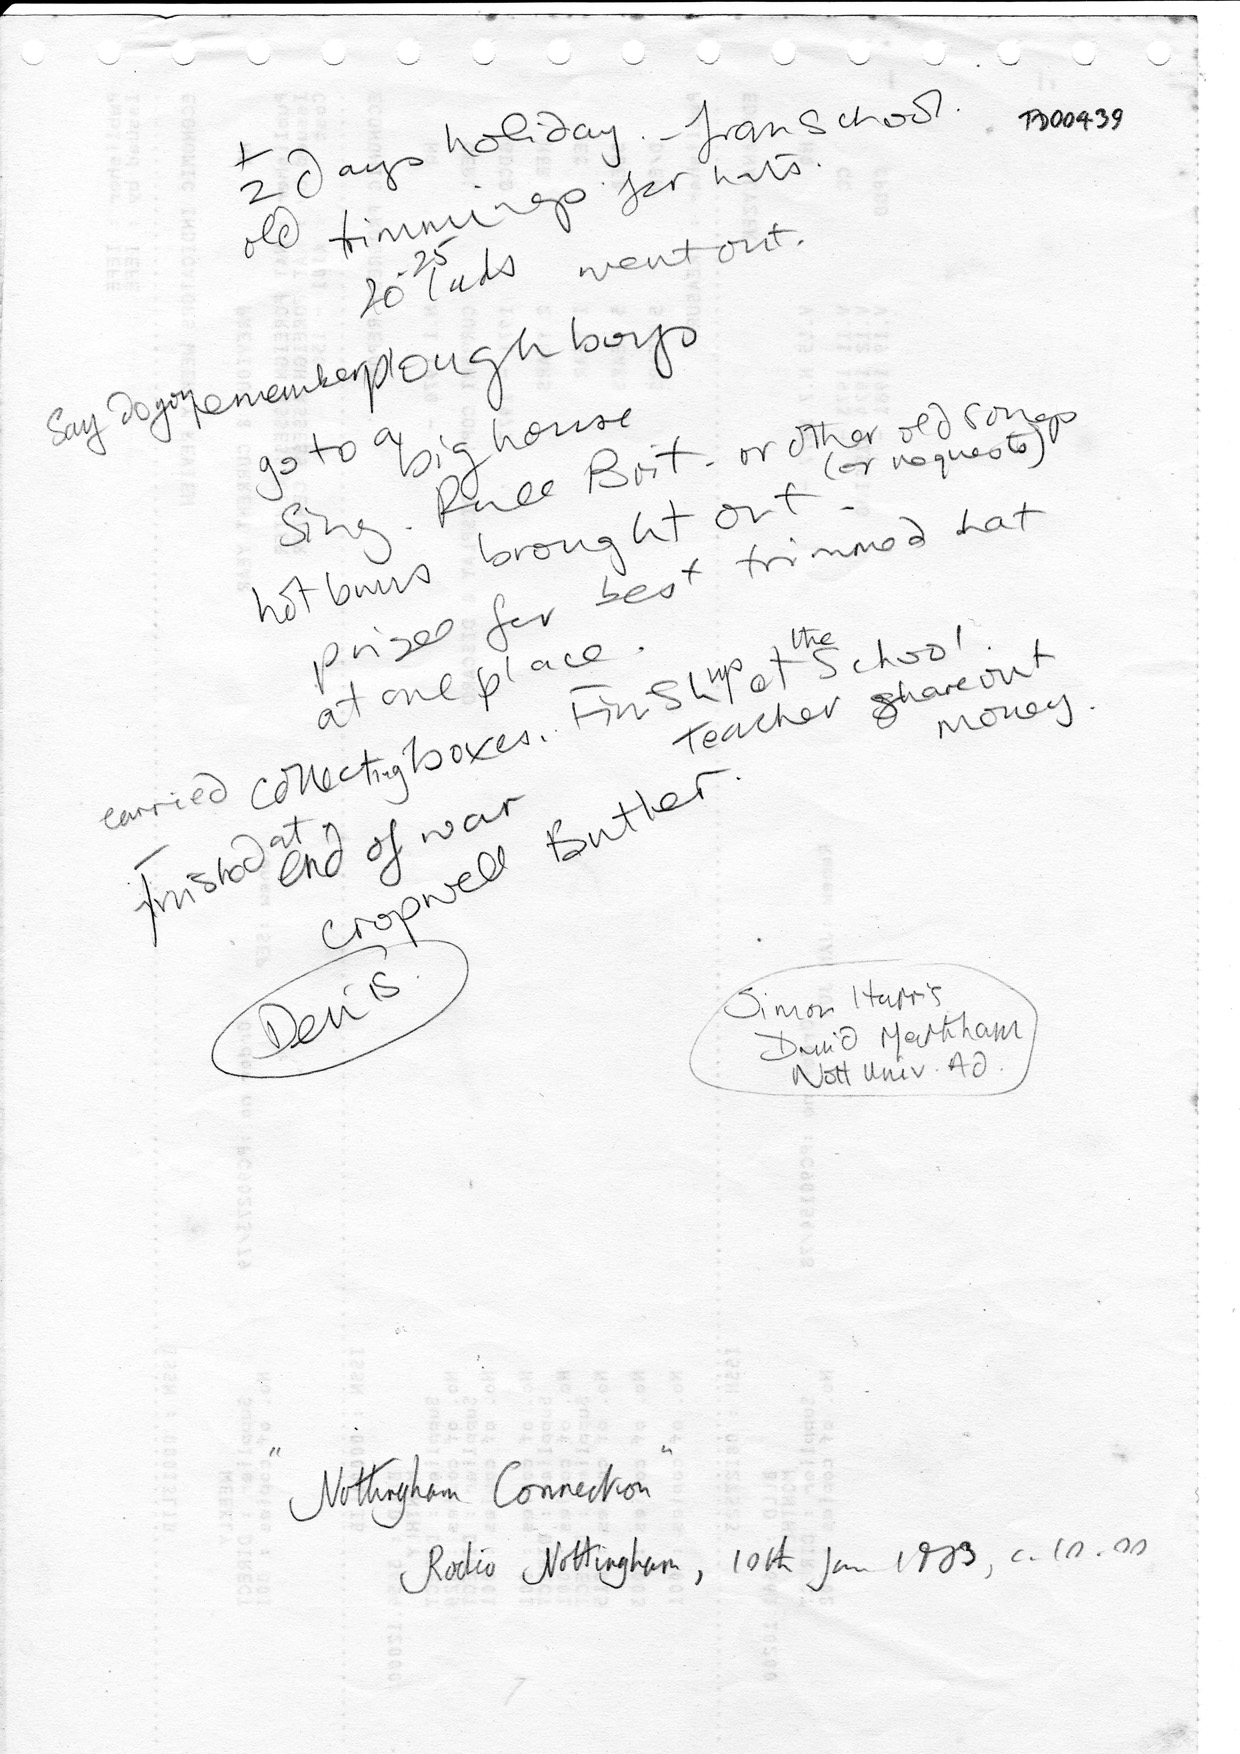 TD00439
½ days holiday. - from School.
old trimmings for hats.
20-25 lads went out.
Say do you remember plough boys
go to a big house
Sing. Rule Brit. or other old songs
(or requests)
hot buns brought out -
prizes for best trimmed hat
at one place.
carried collecting boxes. Finish up at the School.
Teacher share out
money.
finished at end of war
Cropwell Butler.
Denis.
Simon Harris
David Markham
Nott Univ. Ad.
"Nottingham Connection"
Radio Nottingham, 10th Jan 1983, c.10.00